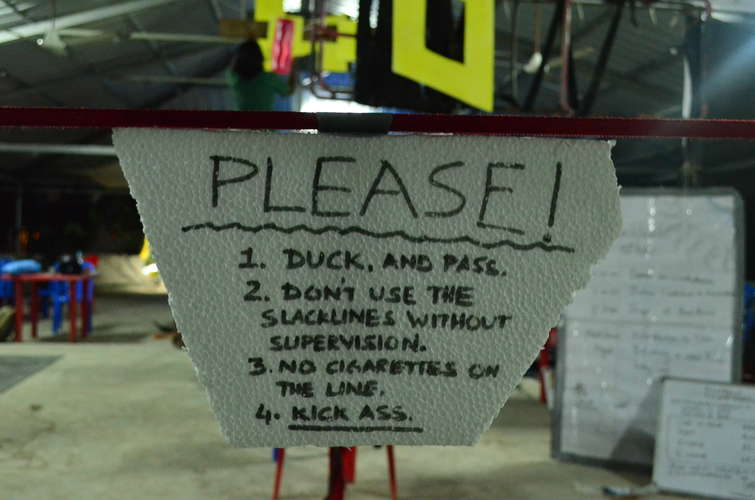 PLEASE!
1. DUCK, AND PASS.
2. DON'T USE THE
SLACKLINES WITHOUT
SUPERVISION.
3. NO CIGARETTES ON
THE LINE.
4. KICK ASS.